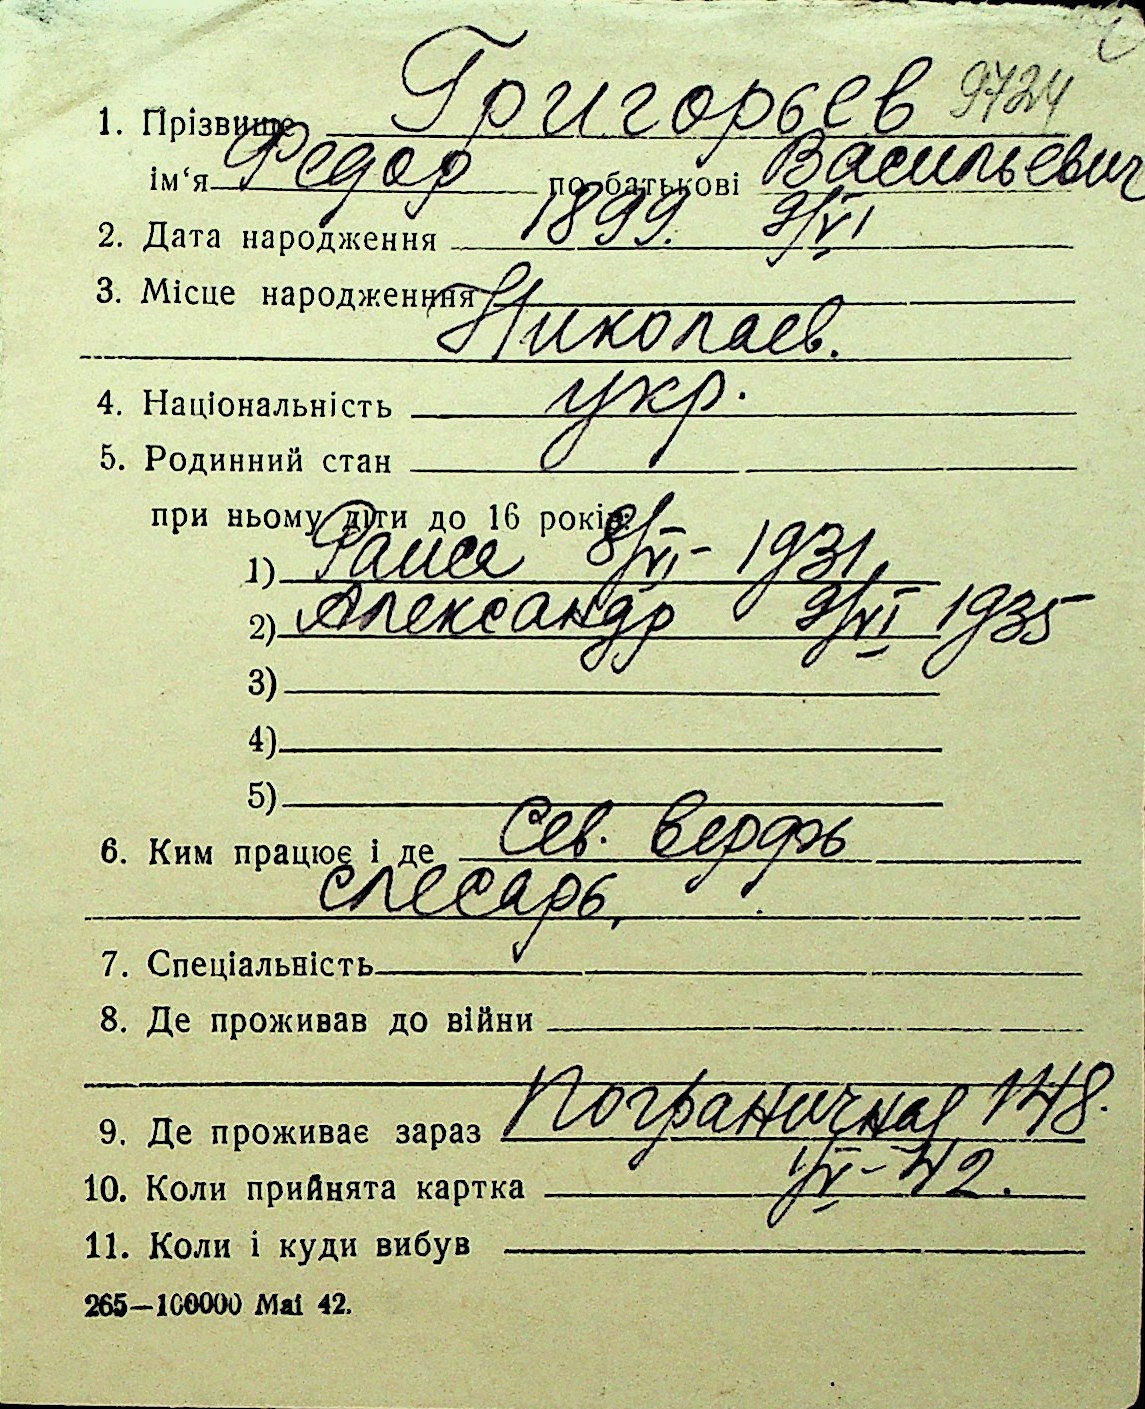 1. Прізвище Григорьев 9724
ім‘я Федор по батькові Васильевич
2. Дата народження 1899. 9/VI
3. Місце народженння
Николаев.
4. Національність укр.
5. Родинний стан
при ньому діти до 16 років:
1) Раиса 8/VI - 1931.
2) Александр 9/VI 1935
3)
4)
5)
6. Ким працює і де Сев. верфь
слесарь,
7. Спеціальність
8. Де проживав до війни
9. Де проживає зараз Пограничная 148.
10. Коли прийнята картка 1/VI - 42.
11. Коли і куди вибув
265—100000 Mai 42.